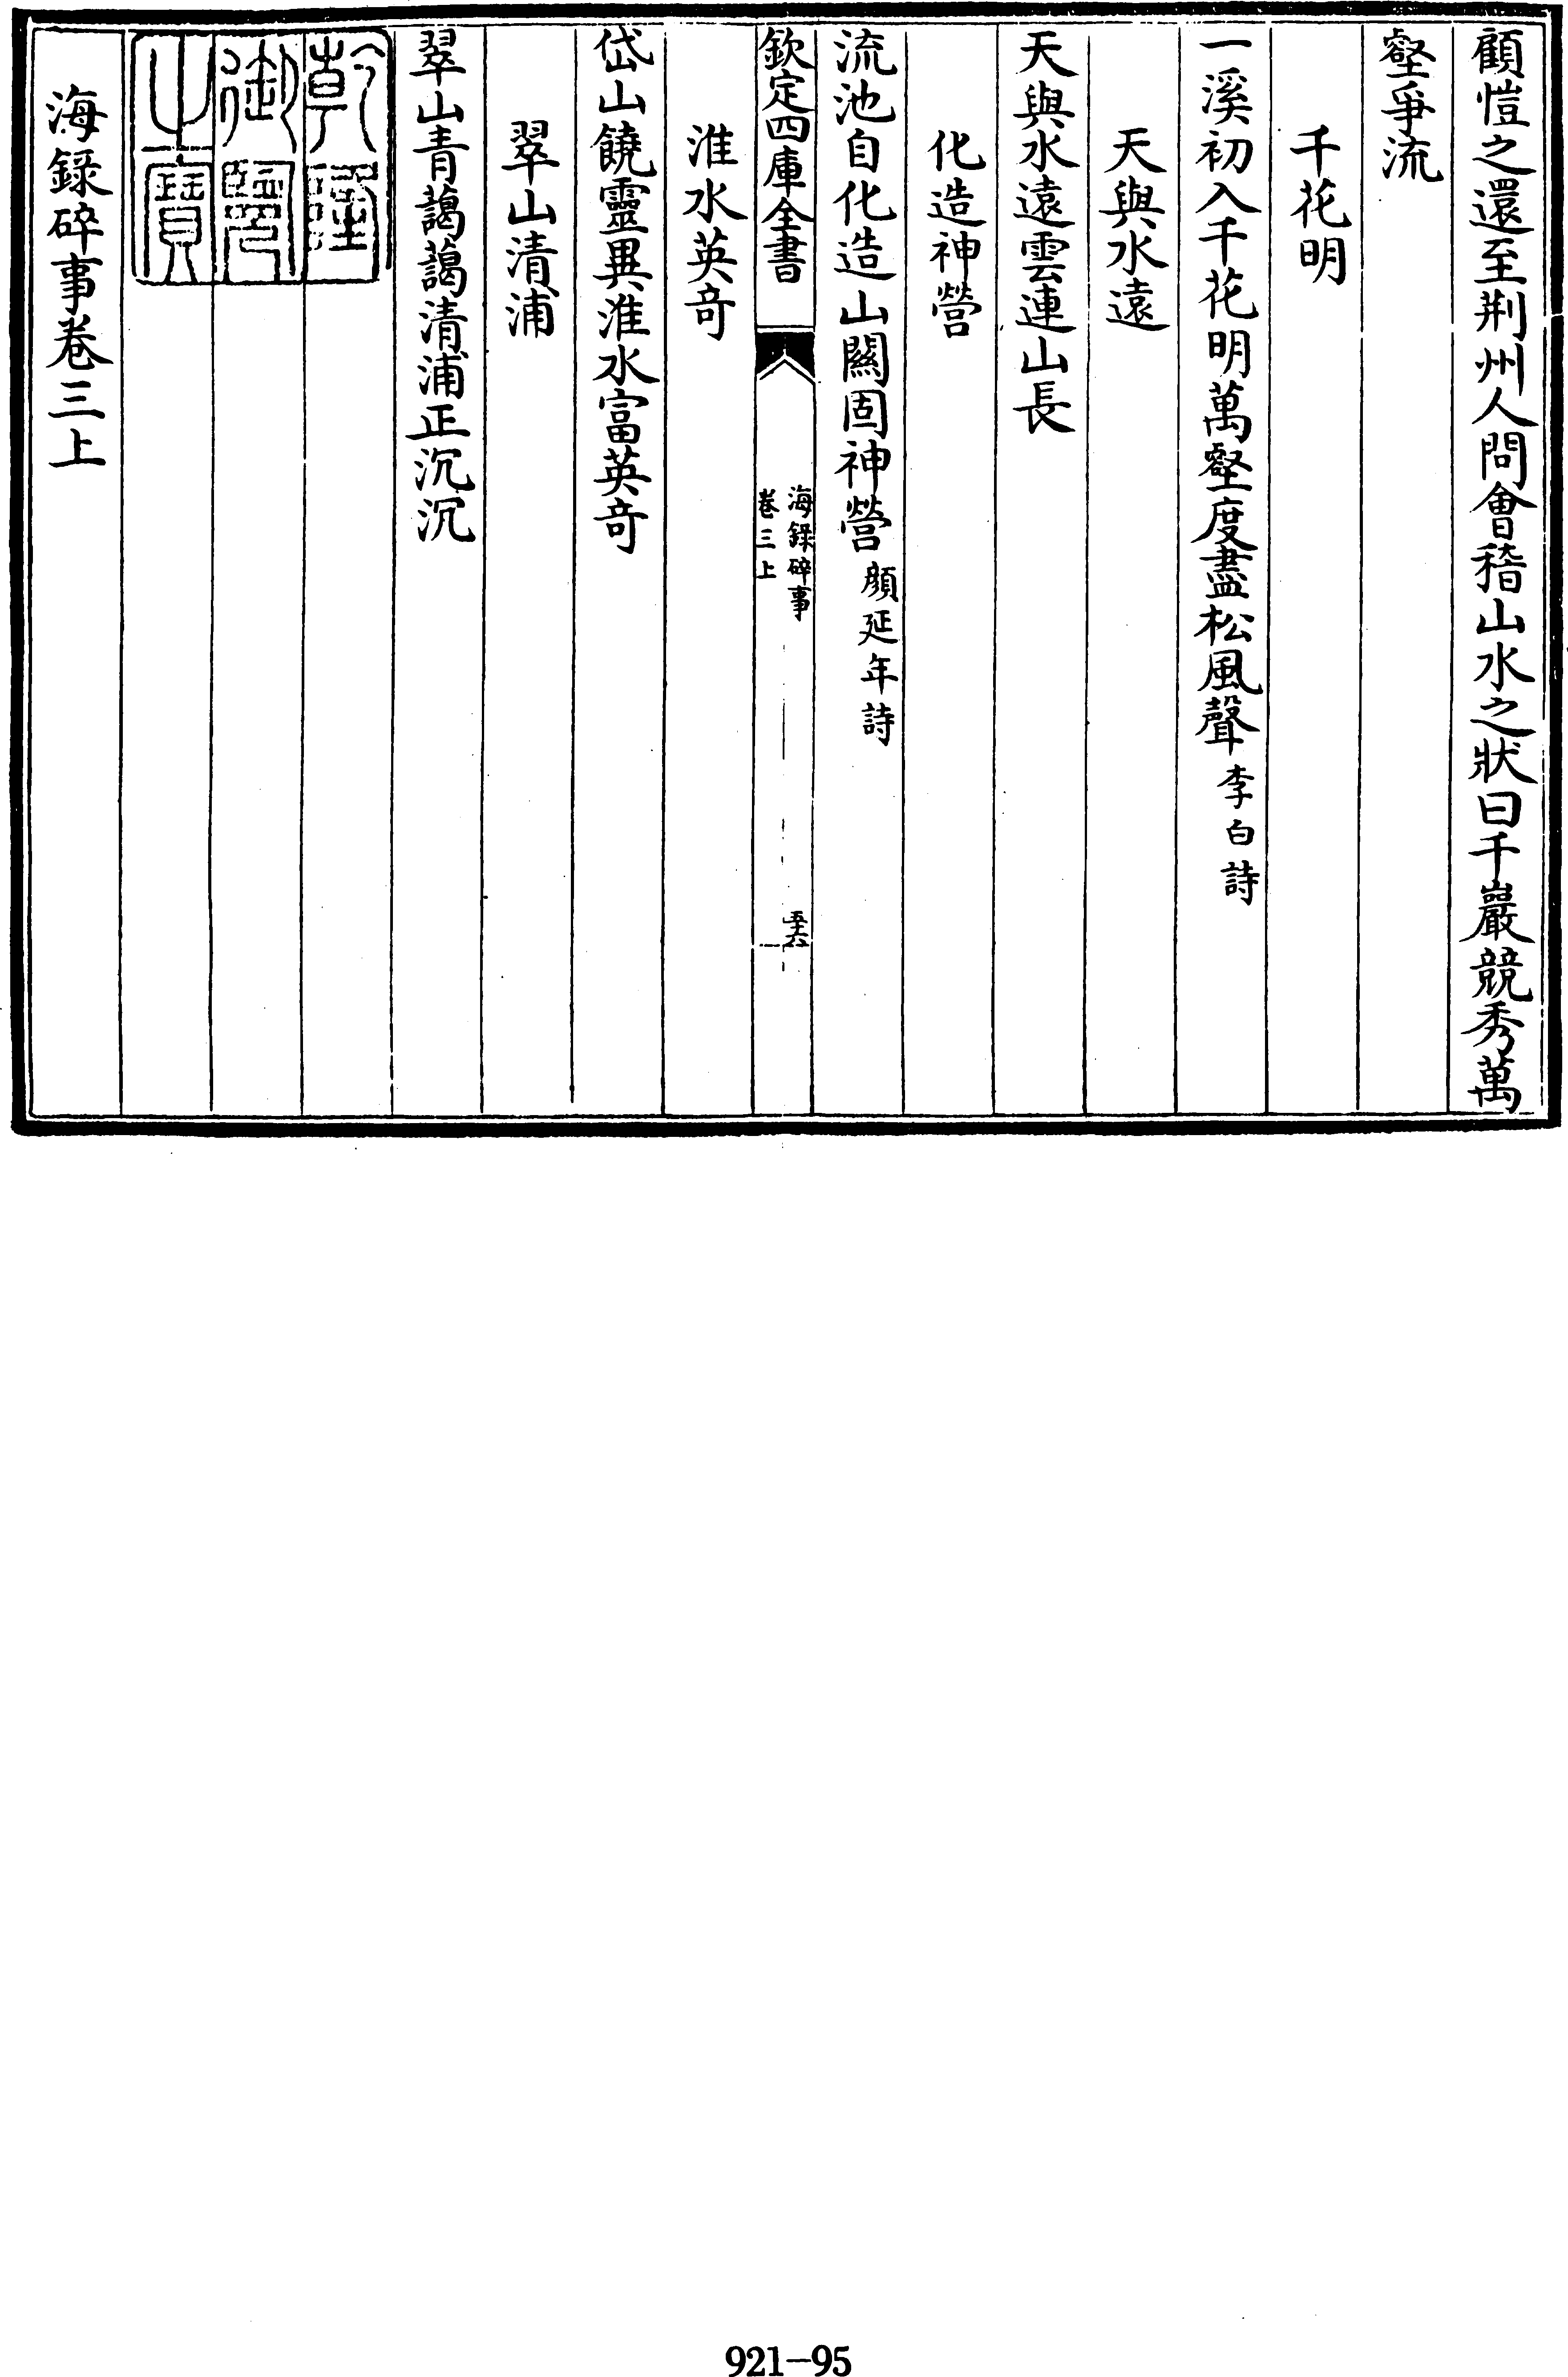 顧愷之還至荆州人問會稽山水之狀曰千巖競秀萬
壑爭流
千花明
一溪初入千花明萬壑度盡松風聲李白詩
天與水遠
天與水遠雲連山長
化造神營
流池自化造山關固神營顔延年詩
欽定四庫全書
海錄碎事
卷三上
五十六
淮水英竒
岱山饒靈異淮水富英竒
翠山清浦
翠山青藹藹清浦正沉沉
乾隆
御覽
之寶
海錄碎事卷三上
921-95